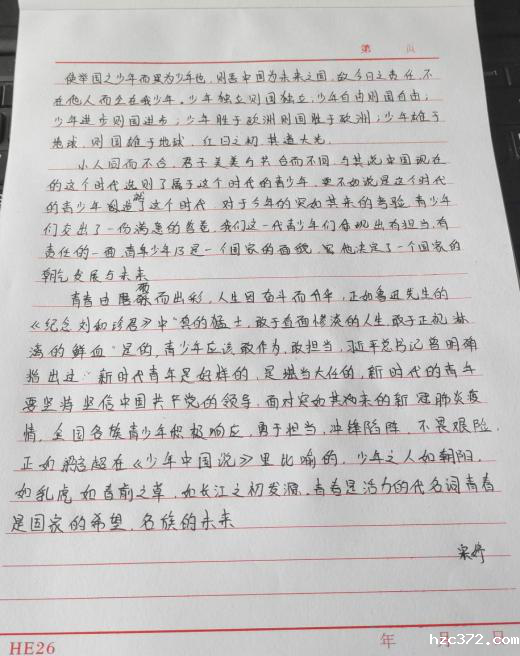 第 页
使举国之少年而果为少年也，则吾中国为未来之国，故今日之责任，不
在他人而全在我少年。少年独立则国独立，少年自由则国自由；
少年进步则国进步；少年胜于欧洲则国胜于欧洲；少年雄于
地球，则国雄于地球，红日之初，其道大光。
小人同而不合，君子美美与共，合而不同，与其说中国现在
的这个时代选则了属于这个时代的青少年，更不如说是这个时代
的青少年就了这个时代，对于今年的突如其来的考验，青少年
们交出了一份满意的答卷，我们这一代青少年们体现出有担当，有
责任的一面，青年少乃是一个国家的面貌，他决定了一个国家的
朝气发展与未来
青春由磨砺而出彩，人生因奋斗而升华，正如鲁迅先生的
《纪念刘和珍君》中"真的猛士，敢于直面惨淡的人生，敢于正视淋
漓的鲜血"是的，青少年应该敢作为，敢担当，习近平总书记曾明确
指出过"新时代青年是好样的，是堪当大任的，新时代的青年
要坚持坚信中国共产党的领导，面对突如其来的新冠肺炎疫
情，全国各族青少年积极响应，勇于担当，冲锋陷阵，不畏艰险，
正如梁启超在《少年中国说》里比喻的，少年之人如朝阳，
如乳虎，如春前之草，如长江之初发源，青春是活力的代名词青春
是国家的希望，名族的未来
宋婷
HE26 年 月 日
hzc372.com